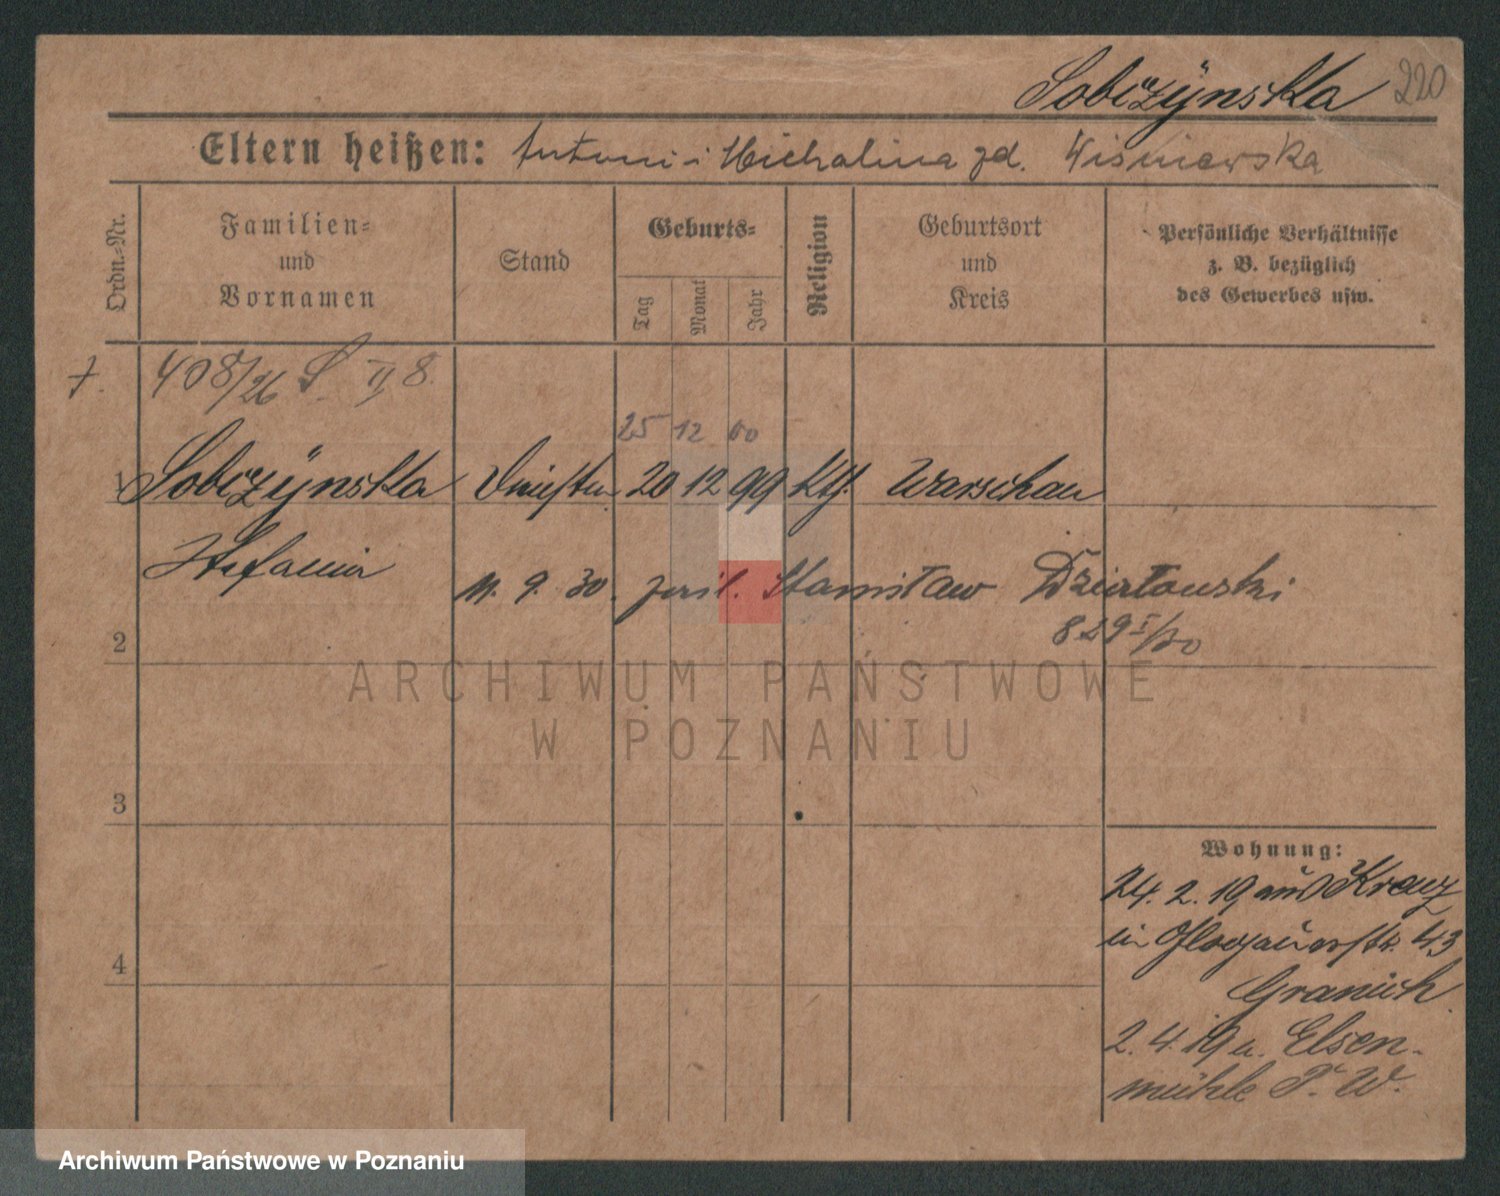 Sobczÿnska 220
Eltern heißen: Antoni i Michalina zd. Wiśniewska
Ordn.-Nr.
Familien- und Vornamen
Stand
Geburts-
Tag
Monat
Jahr
Religion
Geburtsort und Kreis
Persönliche Verhältnisse z. B. bezüglich des Gewerbes usw.
7. 408/26 S. II 8.
25 12 00
1 Sobczÿnska 20 12 99 kth. Warschau
Stefania
11. 9. 30. Stanisław
2
829 I/30
ARCHIWUM PAŃSTWOWE
W POZNANIU
3
Wohnung:
24. 2. 19 aus Kreuz
in Glogauerstr. 43
4
Granich
2. 4. 19 n. Elsen-
mühle P. W.
Archiwum Państwowe w Poznaniu